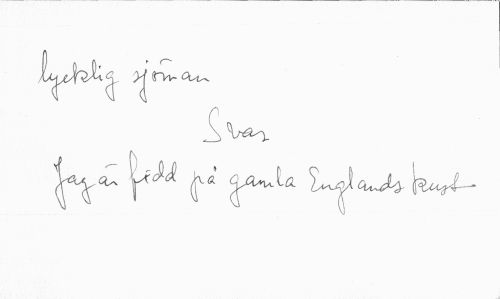 lycklig sjöman
Svar
Jag är född på gamla Englands kust